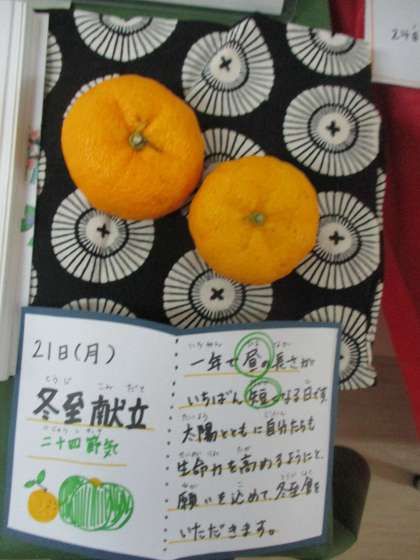 21日(月)
冬至献立
二十四節気
一年で昼の長さが
いちばん短くなる日です。
太陽とともに自分たちも
生命力を高めるようにと、
願いを込めて、冬至食を
いただきます。